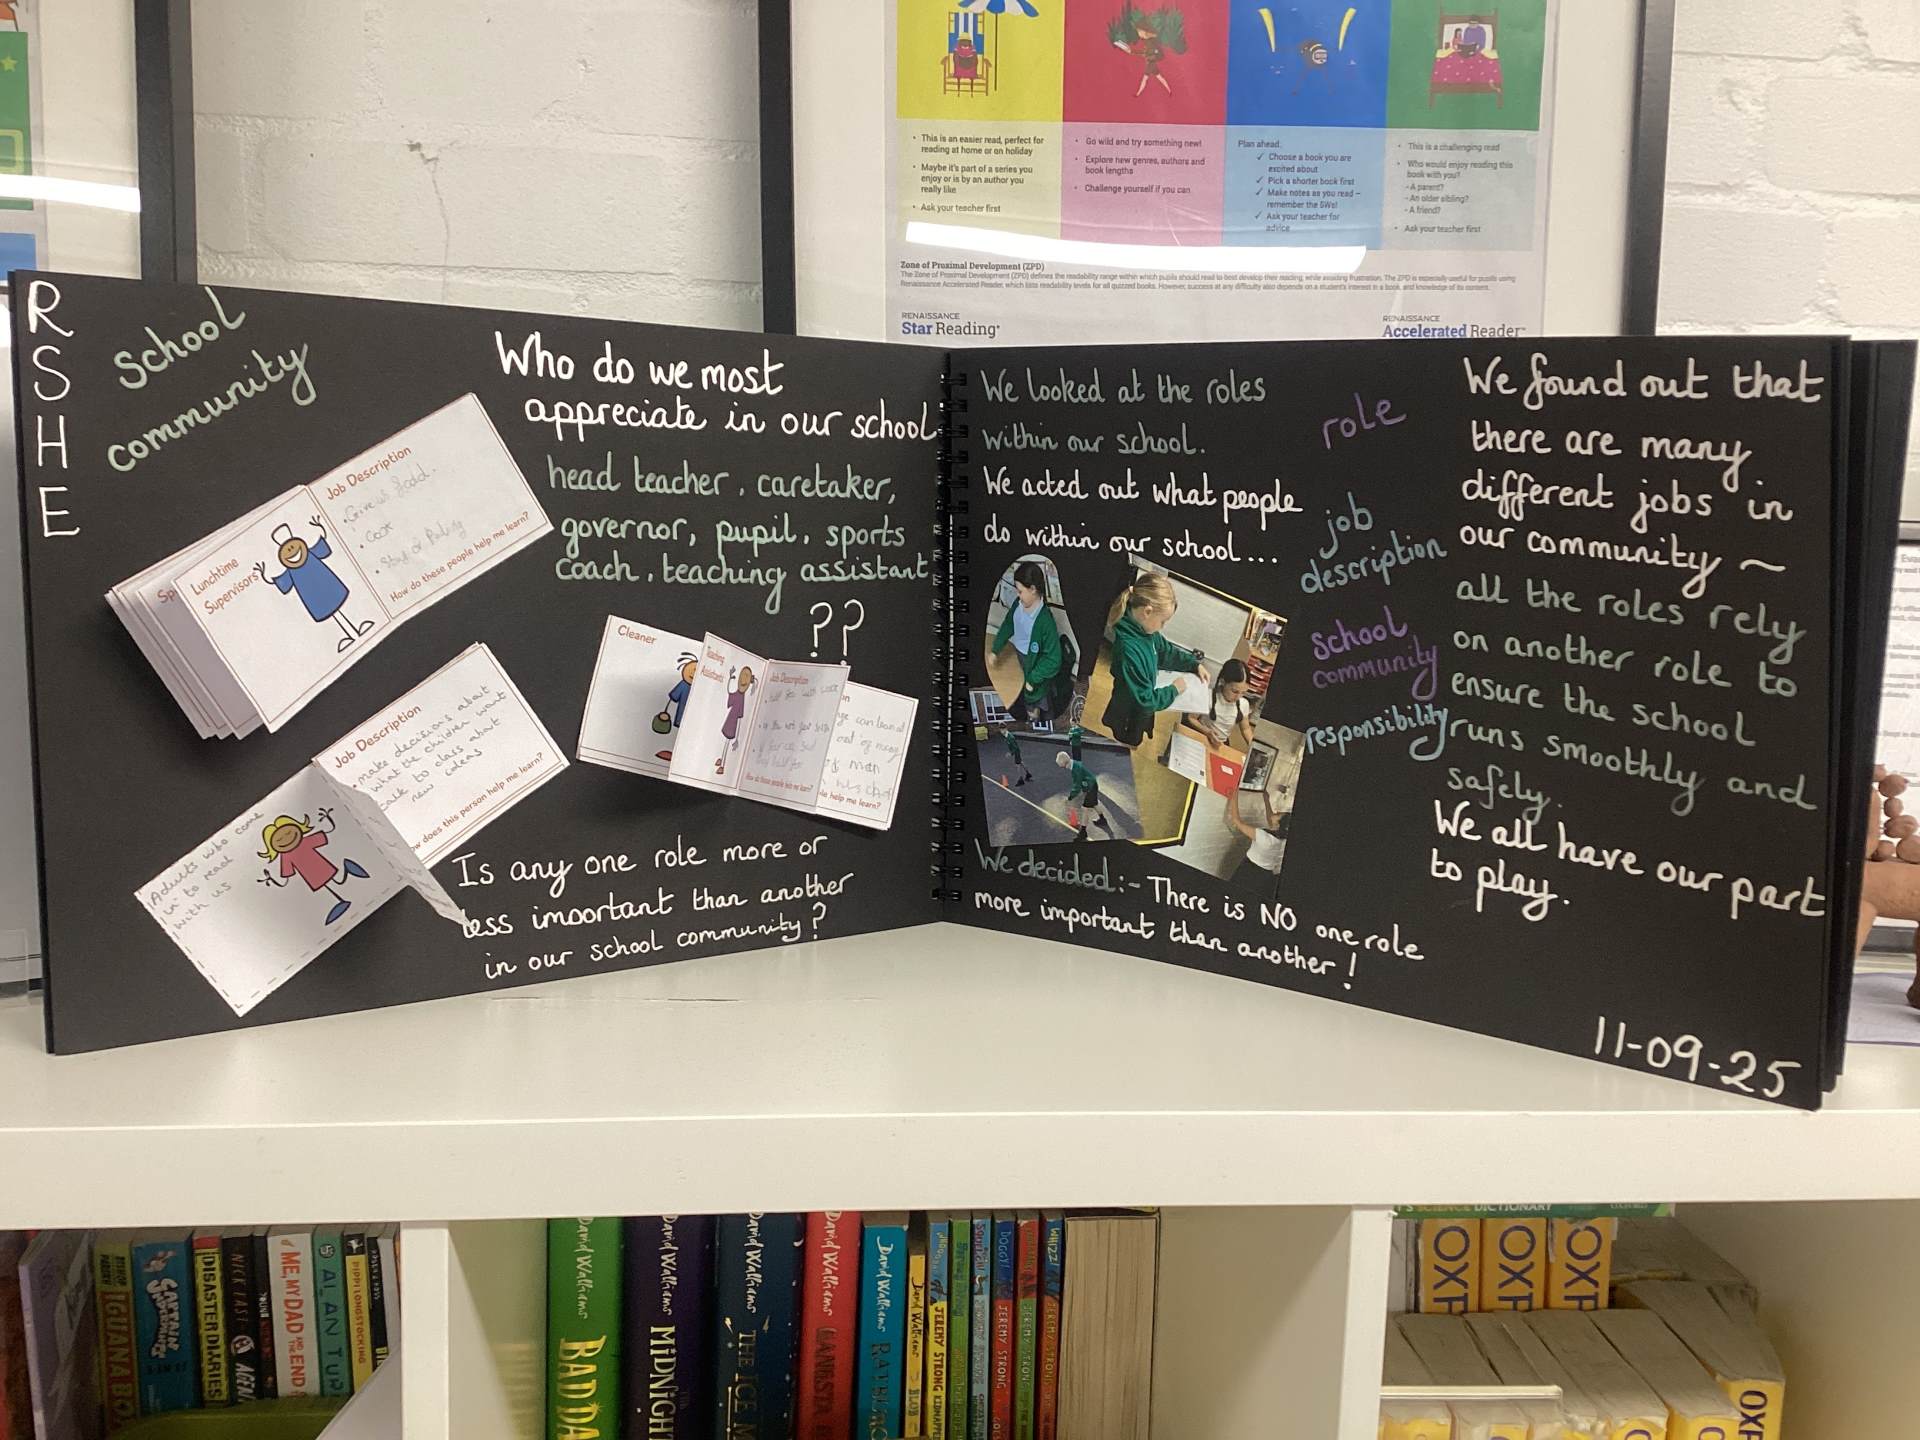 This is an easier read, perfect for
reading at home or on holiday
Maybe it's part of a series you
enjoy or is by an author you
really like
Ask your teacher first
Go wild and try something new!
Explore new genres, authors and
book lengths
Challenge yourself if you can
Plan ahead:
Choose a book you are
excited about
Pick a shorter book first
Make notes as you read –
remember the 5Ws!
Ask your teacher for
advice
This is a challenging read
Who would enjoy reading this
book with you?
- A parent?
- An older sibling?
- A friend?
Ask your teacher first
Zone of Proximal Development (ZPD)
The Zone of Proximal Development (ZPD) defines the readability range within which pupils should read to best develop their reading, while avoiding frustration. The ZPD is especially useful for pupils using
Renaissance Accelerated Reader, which lists readability levels for all quizzed books. However, success at any difficulty also depends on a student's interest in a book, and knowledge of its content.
RENAISSANCE
Star Reading
RENAISSANCE
Accelerated Reader
RSHE
School
community
Who do we most
appreciate in our school
head teacher, caretaker,
governor, pupil, sports
coach, teaching assistant
??
Lunchtime
Supervisors
Job Description
Give us food.
Cook
How do these people help me learn?
Job Description
make decisions about
what the children want
talk to class about
new ideas
How does this person help me learn?
Adults who come
in to read
with us
Cleaner
Teaching
Assistants
Job Description
How do these people help me learn?
help me learn?
Is any one role more or
less important than another
in our school community?
We looked at the roles
within our school.
We acted out what people
do within our school...
role
job
description
school
community
responsibility
We decided:- There is NO one role
more important than another!
We found out that
there are many
different jobs in
our community ~
all the roles rely
on another role to
ensure the school
runs smoothly and
safely.
We all have our part
to play.
11-09-25
IGUANA BO
CAPTAIN
DISASTER DIARIES
NICK LAST
AGEN
ME, MY DAD AND THE END
PIPPI LONGSTOCKING
David Walliams BAD DA
David Walliams MIDNIGHT
David Walliams THE ICE M
David Walliams GANGSTA
David Walliams RATBURG
David Walliams BLOB
JEREMY STRONG KIDNAPPE
JEREMY STRONG
JEREMY STRONG
JEREMY STRONG
SCIENCE DICTIONARY
OXF
OXF
OXF
OXF